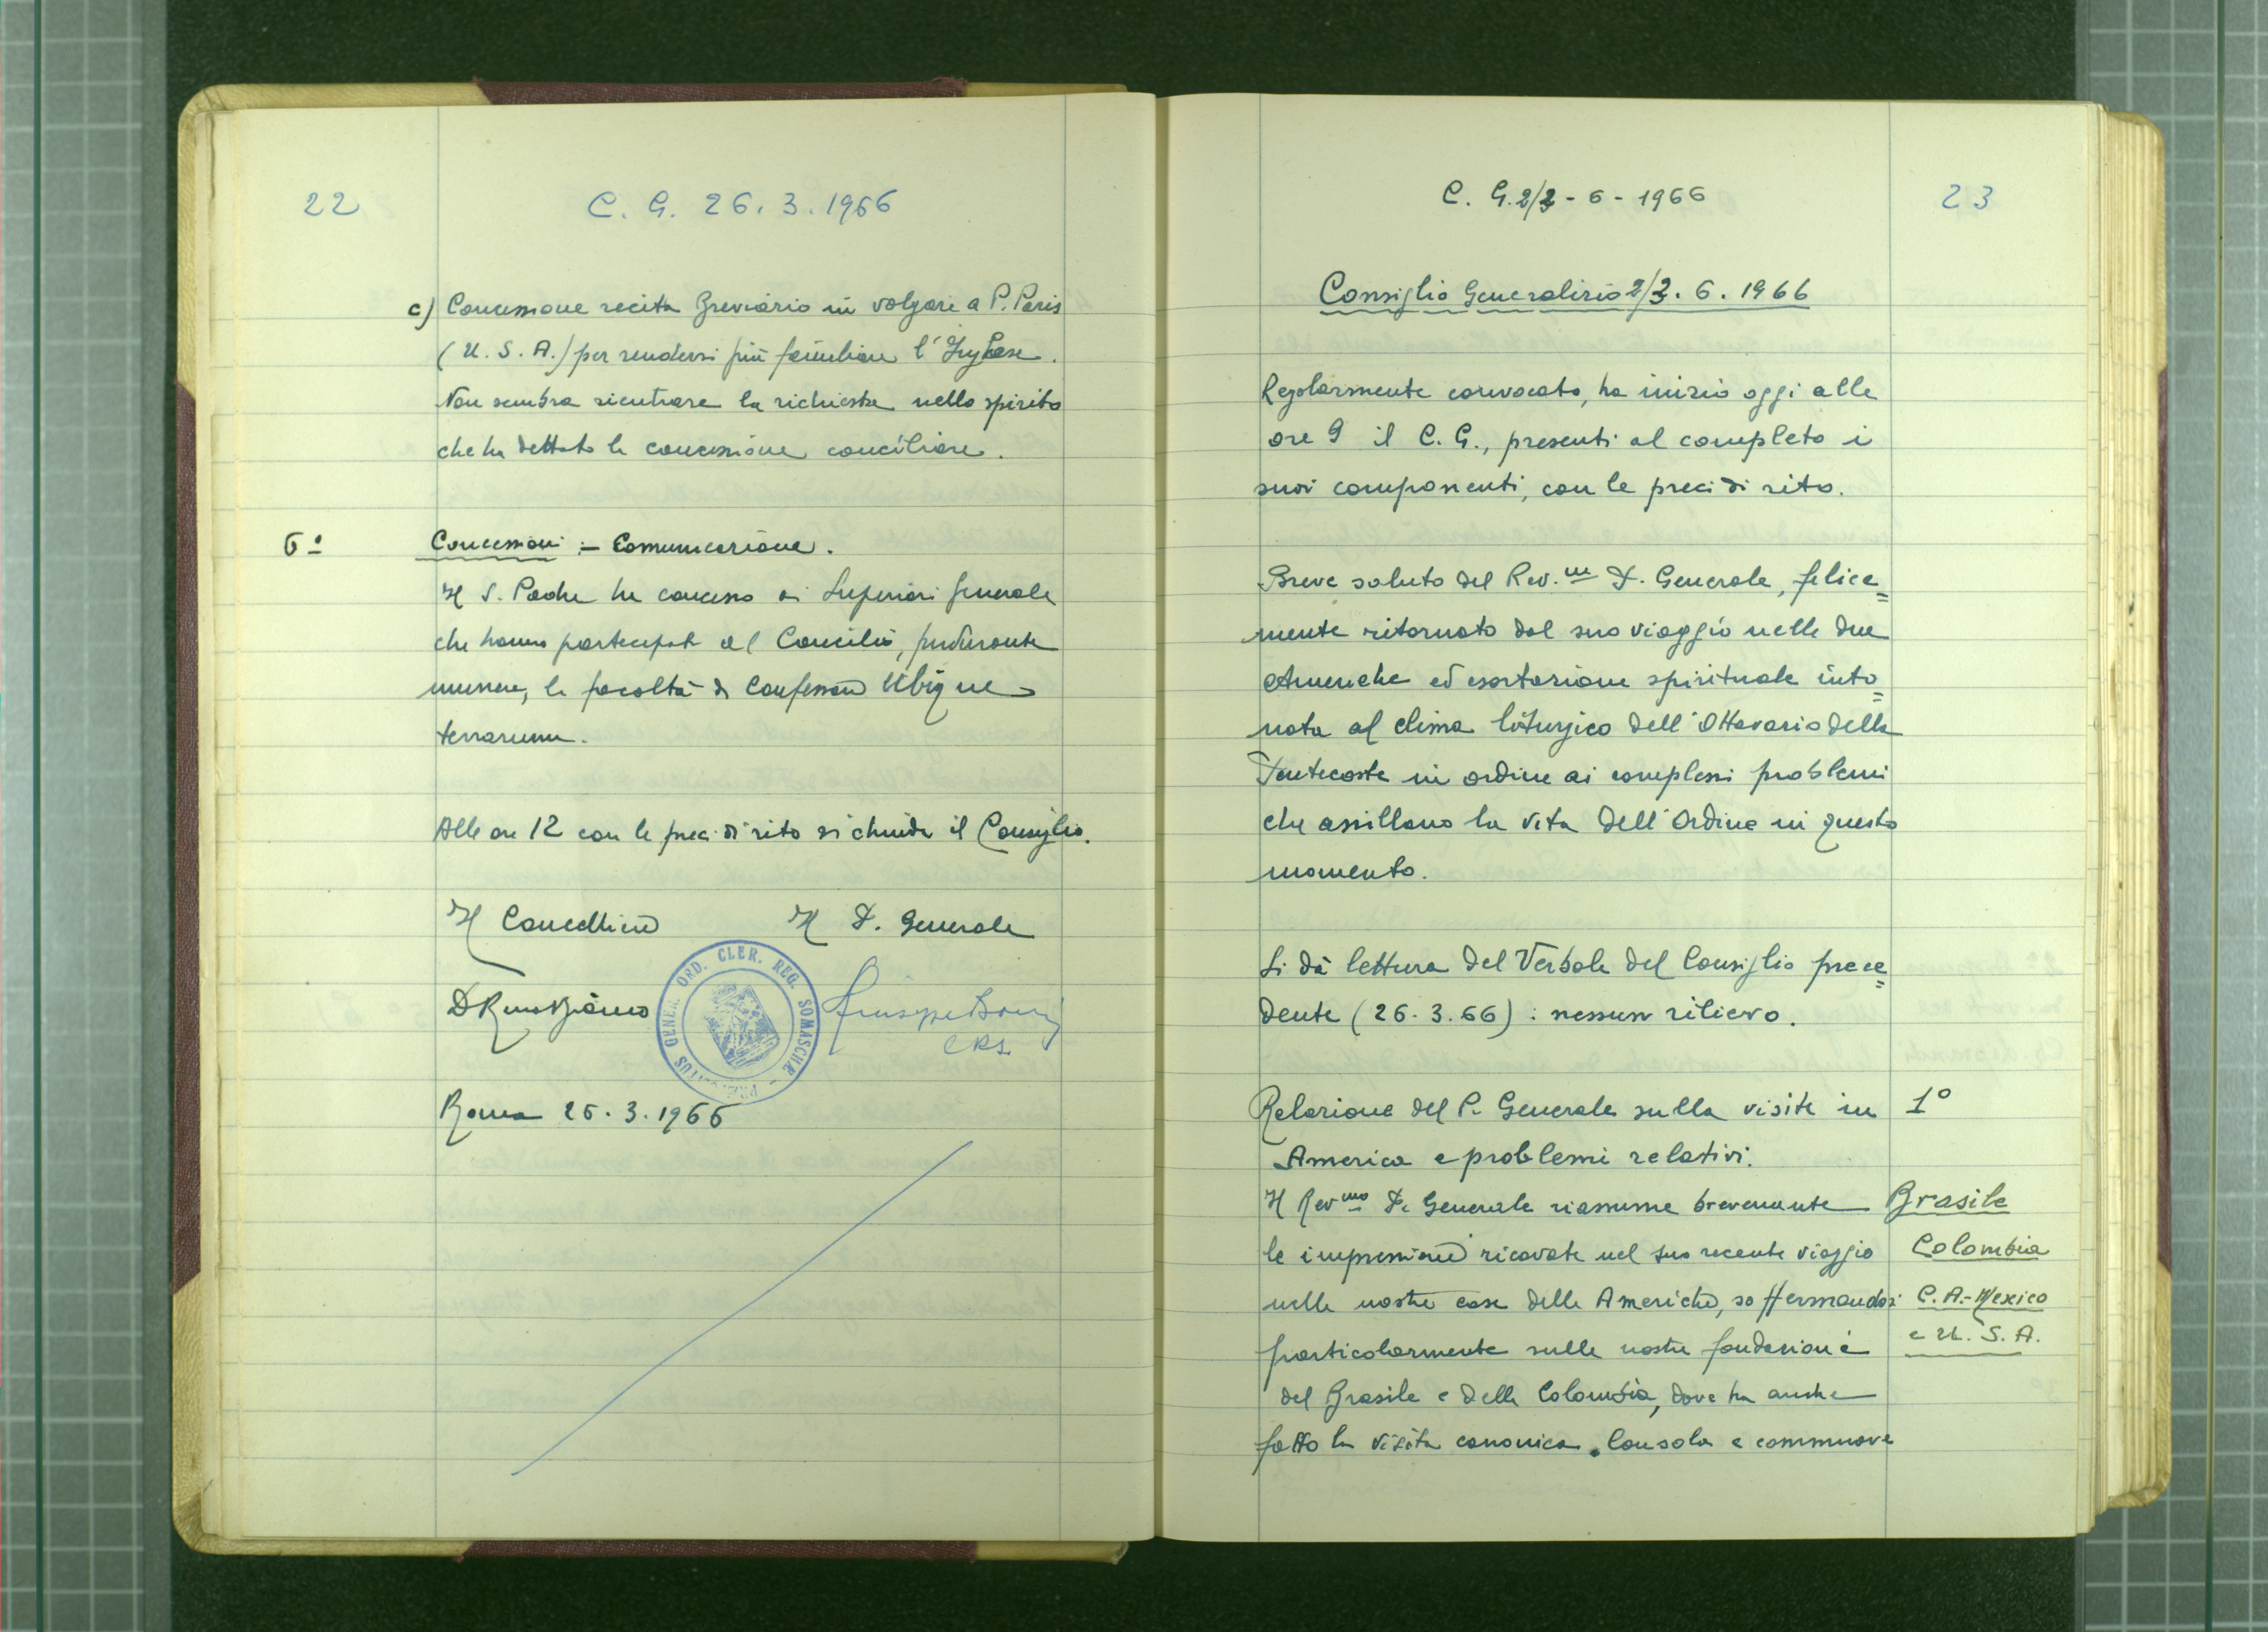 22
C. G. 26. 3. 1966
c) Concessione recita Breviario in volgare a P. Paris
(U. S. A.) per rendersi più familiare l'Inglese.
Non sembra rientrare la richiesta nello spirito
che ha dettato la concessione conciliare.
6º Concessioni :- Comunicazione.
Il S. Padre ha concesso ai Superiori generale
che hanno partecipato al Concilio, perdurante
munere, la facoltà di Confessare Ubique
terrarum.
Alle ore 12 con le preci di rito si chiude il Consiglio.
Il Cancelliere Il P. Generale
CRS
GENER. ORD. CLER. REG. SOMASCHAE - PRAEPOSITUS
Roma 26. 3. 1966
C. G. 2/3 - 6 - 1966
23
Consiglio Generalizio 2/3. 6. 1966
Regolarmente convocato, ha inizio oggi alle
ore 9 il C. G., presenti al completo i
suoi componenti, con le preci di rito.
Breve saluto del Rev.m P. Generale, felice=
mente ritornato dal suo viaggio nelle due
Americhe ed esortazione spirituale into=
nata al clima liturgico dell'Ottavario della
Pentecoste in ordine ai complessi problemi
che assillano la vita dell'Ordine in questo
momento.
Si dà lettura del Verbale del Consiglio prece=
dente (26. 3. 66) : nessun rilievo.
Relazione del P. Generale sulla visita in 1º
America e problemi relativi.
Il Rev.mo P. Generale riassume brevemente Brasile
le impressioni ricavate nel suo recente viaggio Colombia
nelle nostre case delle Americhe, soffermandosi C. A. - Mexico
particolarmente sulle nostre fondazioni e U. S. A.
del Brasile e della Colombia, dove ha anche
fatto la visita canonica. Consola e commuove